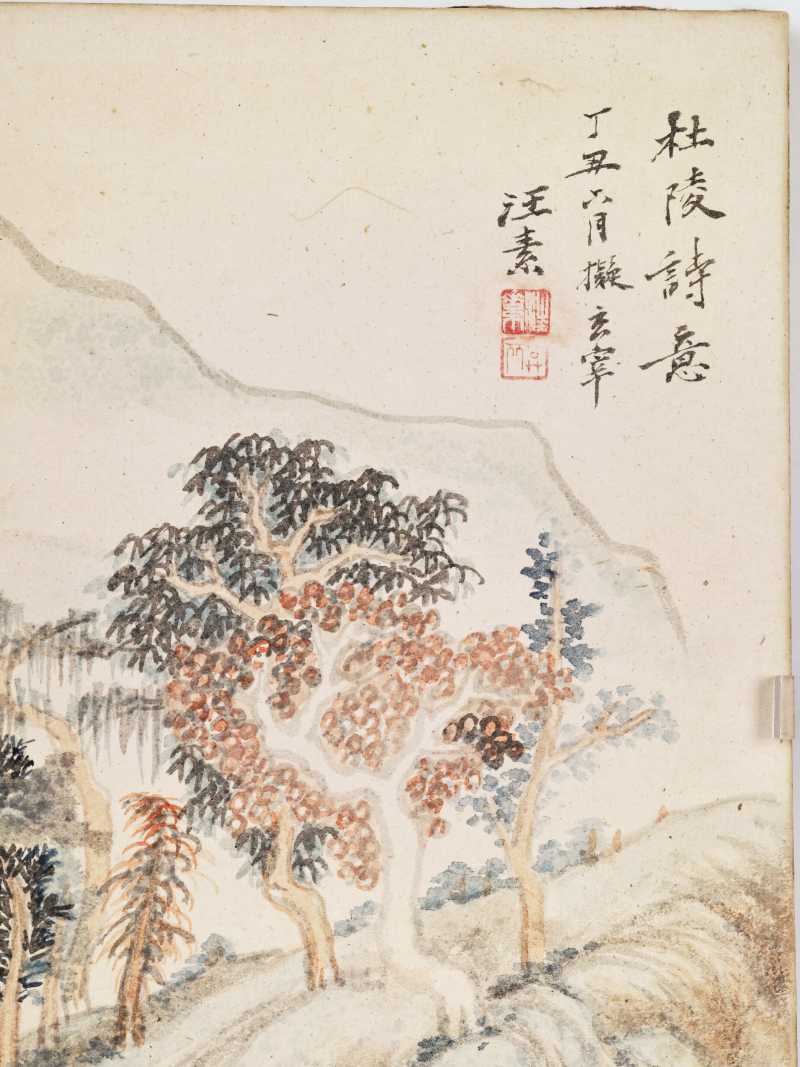 杜陵詩意
丁丑六月擬玄宰
汪素